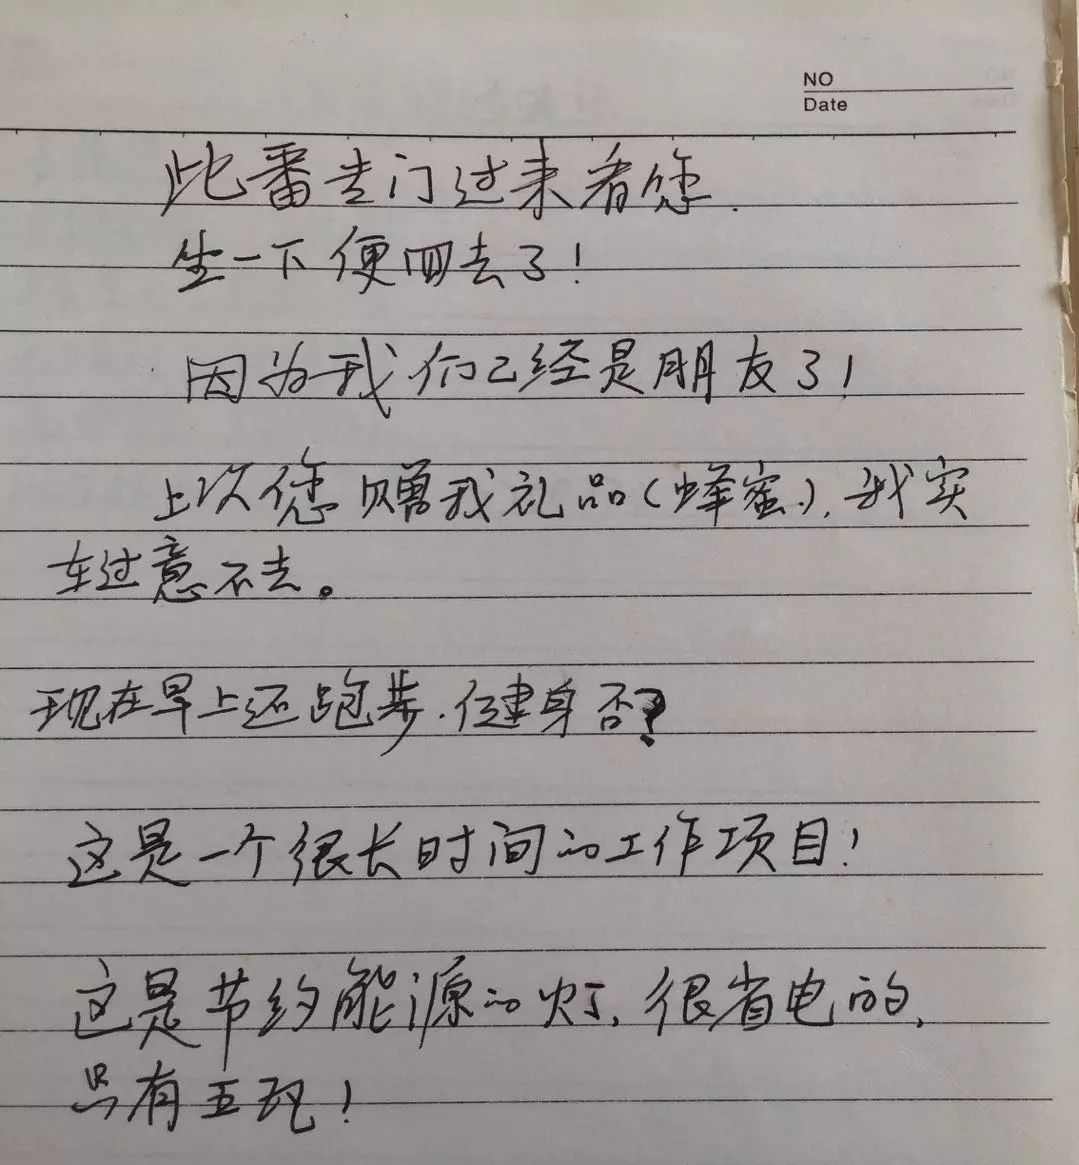 NO
Date
此番专门过来看您.
坐一下便回去了!
因为我们已经是朋友了!
上次您赠我礼品(蜂蜜),我实
在过意不去。
现在早上还跑步.健身否?
这是一个很长时间的工作项目!
这是节约能源的灯,很省电的,
只有五瓦!